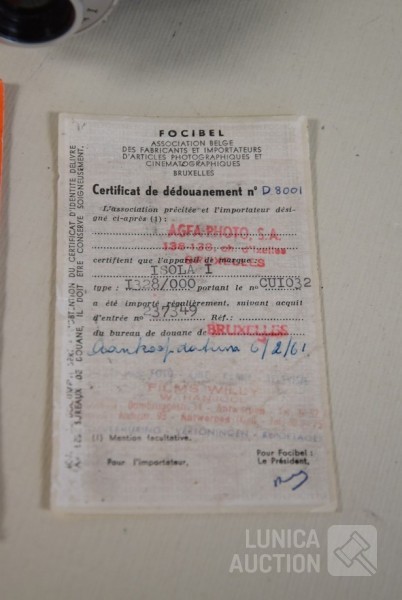 FOCIBEL
ASSOCIATION BELGE
DES FABRICANTS ET IMPORTATEURS
D'ARTICLES PHOTOGRAPHIQUES ET
CINEMATOGRAPHIQUES
BRUXELLES
Certificat de dédouanement n° D 8001
L'association précitée et l'importateur dési-
gné ci-après (1) :
AGFA-PHOTO, S.A.
136-138, ch. d'Ixelles
BRUXELLES
certifient que l'appareil de marque :
ISOLA I
type : I328/000 portant le n° CUI032
a été importé régulièrement, suivant acquit
d'entrée n° 37349 Réf.:
du bureau de douane de BRUXELLES
Aankoopdatum 6/2/61
FILMS WILLY
(1) Mention facultative.
Pour l'importateur,
Pour Focibel :
Le Président,
DU CERTIFICAT D'IDENTITÉ DÉLIVRÉ
BUREAUX DE DOUANE, IL DOIT ÊTRE CONSERVÉ SOIGNEUSEMENT.
LUNICA
AUCTION